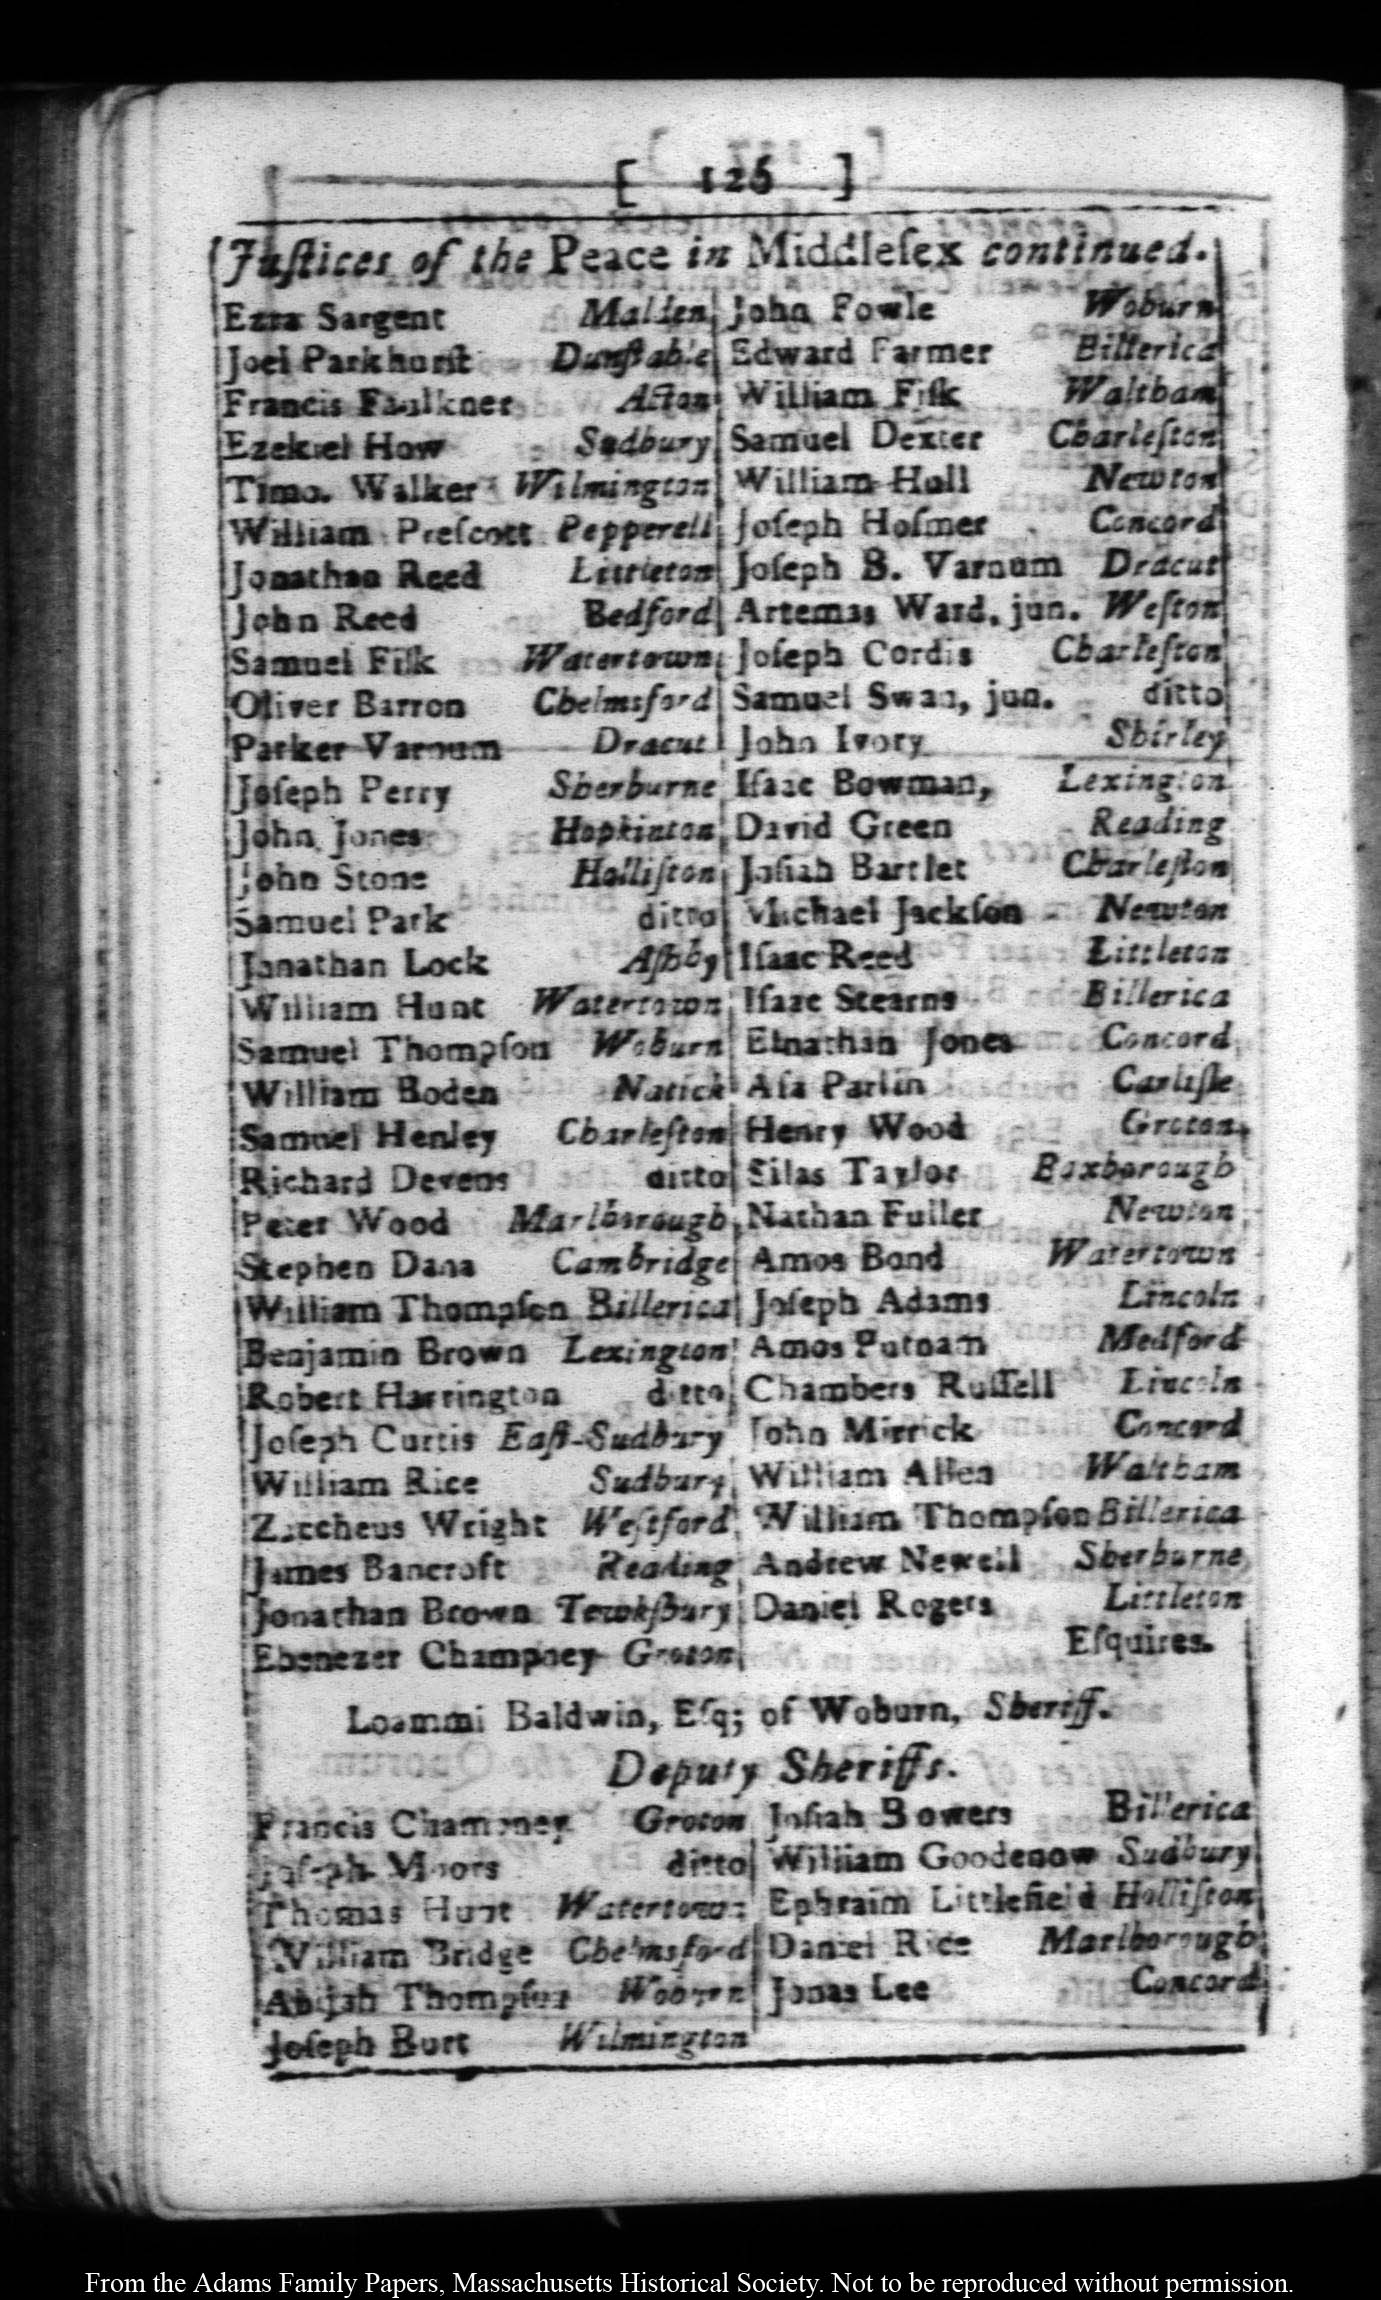 [ 126 ]
Juſtices of the Peace in Middleſex continued.
Ezra Sargent Malden
Joel Parkhurſt Dunſtable
Francis Faulkner Acton
Ezekiel How Sudbury
Timo. Walker Wilmington
William Preſcott Pepperell
Jonathan Reed Littleton
John Reed Bedford
Samuel Fiſk Watertown
Oliver Barron Chelmsford
Parker Varnum Dracut
Joſeph Perry Sherburne
John Jones Hopkinton
John Stone Holliſton
Samuel Park ditto
Jonathan Lock Aſhby
William Hunt Watertown
Samuel Thompſon Woburn
William Boden Natick
Samuel Henley Charleſton
Richard Devens ditto
Peter Wood Marlborough
Stephen Dana Cambridge
William Thompſon Billerica
Benjamin Brown Lexington
Robert Harrington ditto
Joſeph Curtis Eaſt-Sudbury
William Rice Sudbury
Zaccheus Wright Weſtford
James Bancroft Reading
Jonathan Brown Tewkſbury
Ebenezer Champney Groton
John Fowle Woburn
Edward Farmer Billerica
William Fiſk Waltham
Samuel Dexter Charleſton
William Hull Newton
Joſeph Hoſmer Concord
Joſeph B. Varnum Dracut
Artemas Ward, jun. Weſton
Joſeph Cordis Charleſton
Samuel Swan, jun. ditto
John Ivory Shirley
Iſaac Bowman, Lexington
David Green Reading
Joſiah Bartlet Charleſton
Michael Jackſon Newton
Iſaac Reed Littleton
Iſaac Stearns Billerica
Elnathan Jones Concord
Aſa Parlin Carliſle
Henry Wood Groton
Silas Taylor Boxborough
Nathan Fuller Newton
Amos Bond Watertown
Joſeph Adams Lincoln
Amos Putnam Medford
Chambers Ruſſell Lincoln
John Mirrick Concord
William Allen Waltham
William Thompſon Billerica
Andrew Newell Sherburne
Daniel Rogers Littleton
Eſquires.
Loammi Baldwin, Eſq; of Woburn, Sheriff.
Deputy Sheriffs.
Francis Champney Groton
Joſeph Moors ditto
Thomas Hunt Watertown
William Bridge Chelmsford
Abijah Thompſon Woburn
Joſeph Burt Wilmington
Joſiah Bowers Billerica
William Goodenow Sudbury
Ephraim Littlefield Holliſton
Daniel Rice Marlborough
Jonas Lee Concord
From the Adams Family Papers, Massachusetts Historical Society. Not to be reproduced without permission.